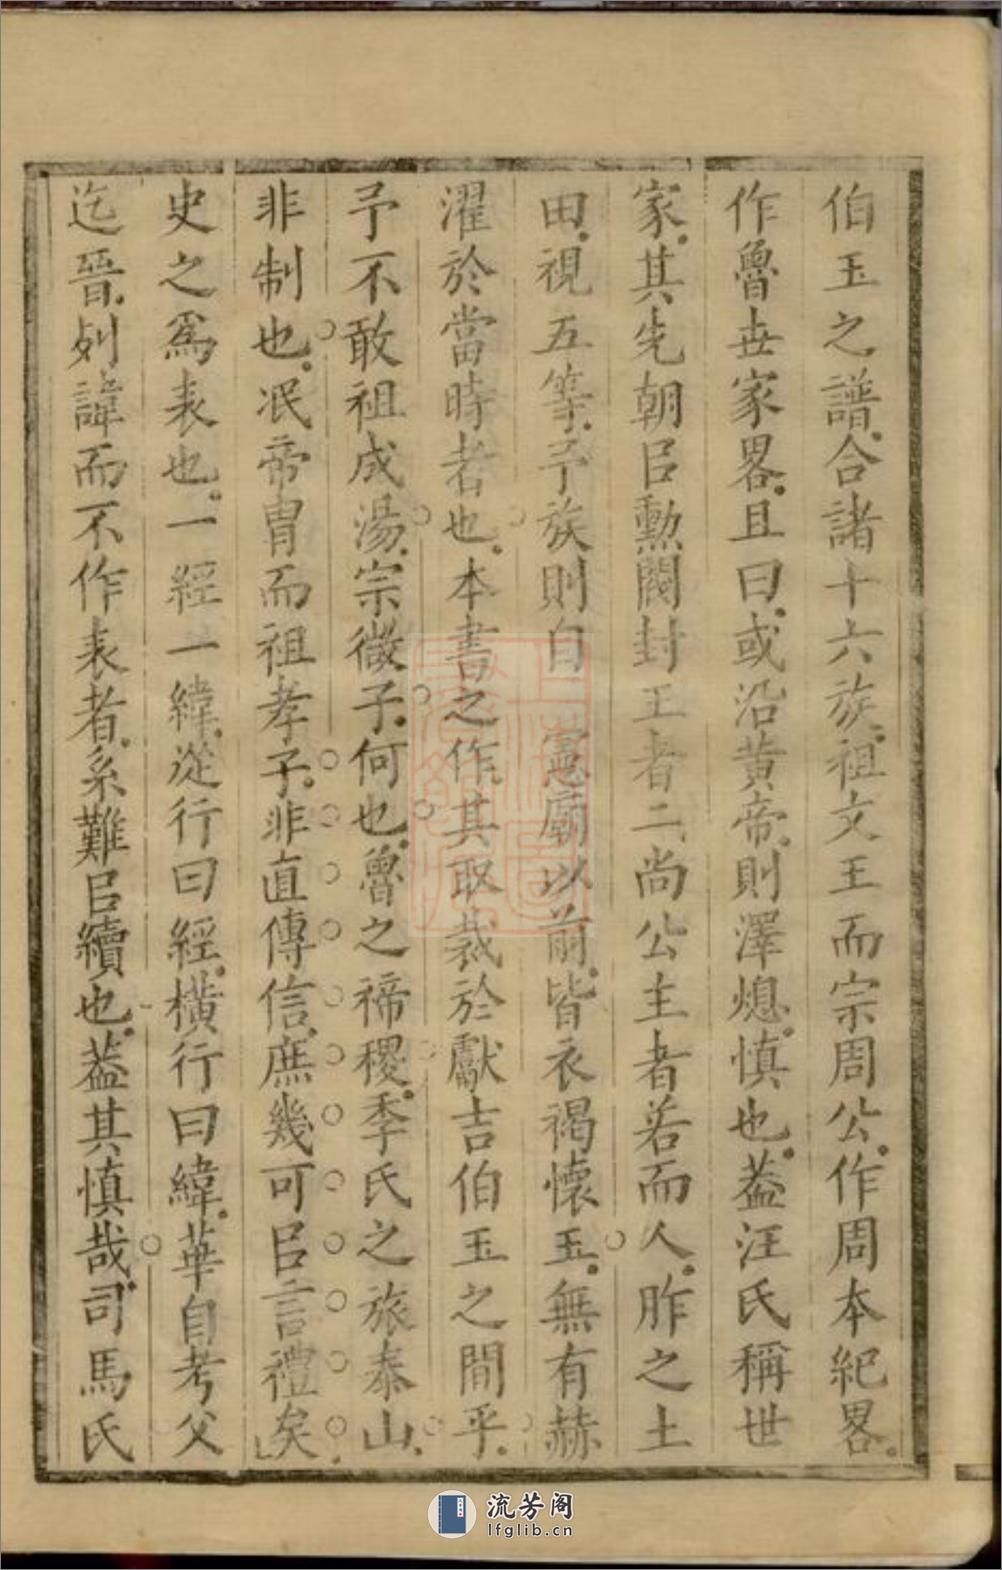 伯玉之譜合諸十六族祖文王而宗周公作周本紀畧
作魯世家畧且曰或沿黄帝則澤熄慎也葢汪氏稱世
家其先朝㠯勲閥封王者二尚公主者若而人胙之土
田視五等予族則自憲廟以前皆衣褐懷玉無有赫
濯於當時者也本書之作其取裁於獻吉伯玉之間乎
予不敢祖成湯宗微子何也魯之禘稷季氏之旅泰山
非制也冺帝胄而祖孝子非直傳信庶幾可㠯言禮矣
史之爲表也一經一緯從行曰經橫行曰緯華自考父
迄晉列諱而不作表者系難㠯續也葢其慎哉司馬氏
流芳阁
lfglib.cn